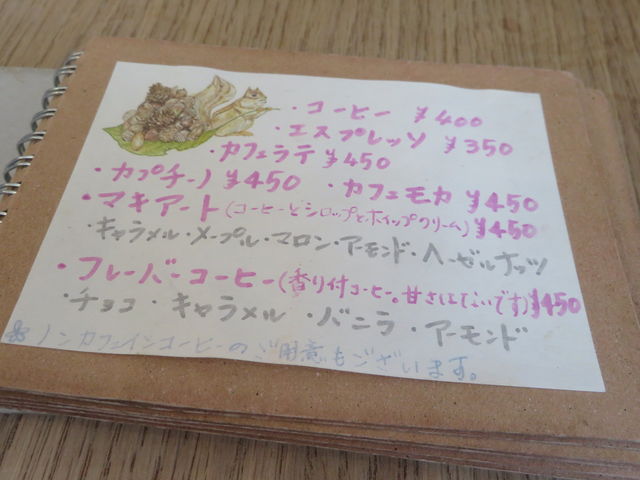 ・コーヒー ¥400
・エスプレッソ ¥350
・カフェラテ ¥450
・カプチーノ ¥450 ・カフェモカ ¥450
・マキアート(コーヒーとシロップとホイップクリーム) ¥450
・キャラメル・メープル・マロン・アーモンド・ヘーゼルナッツ
・フレーバーコーヒー(香り付コーヒー。甘さはないです) ¥450
・チョコ・キャラメル・バニラ・アーモンド
※ノンカフェインコーヒーのご用意もございます。